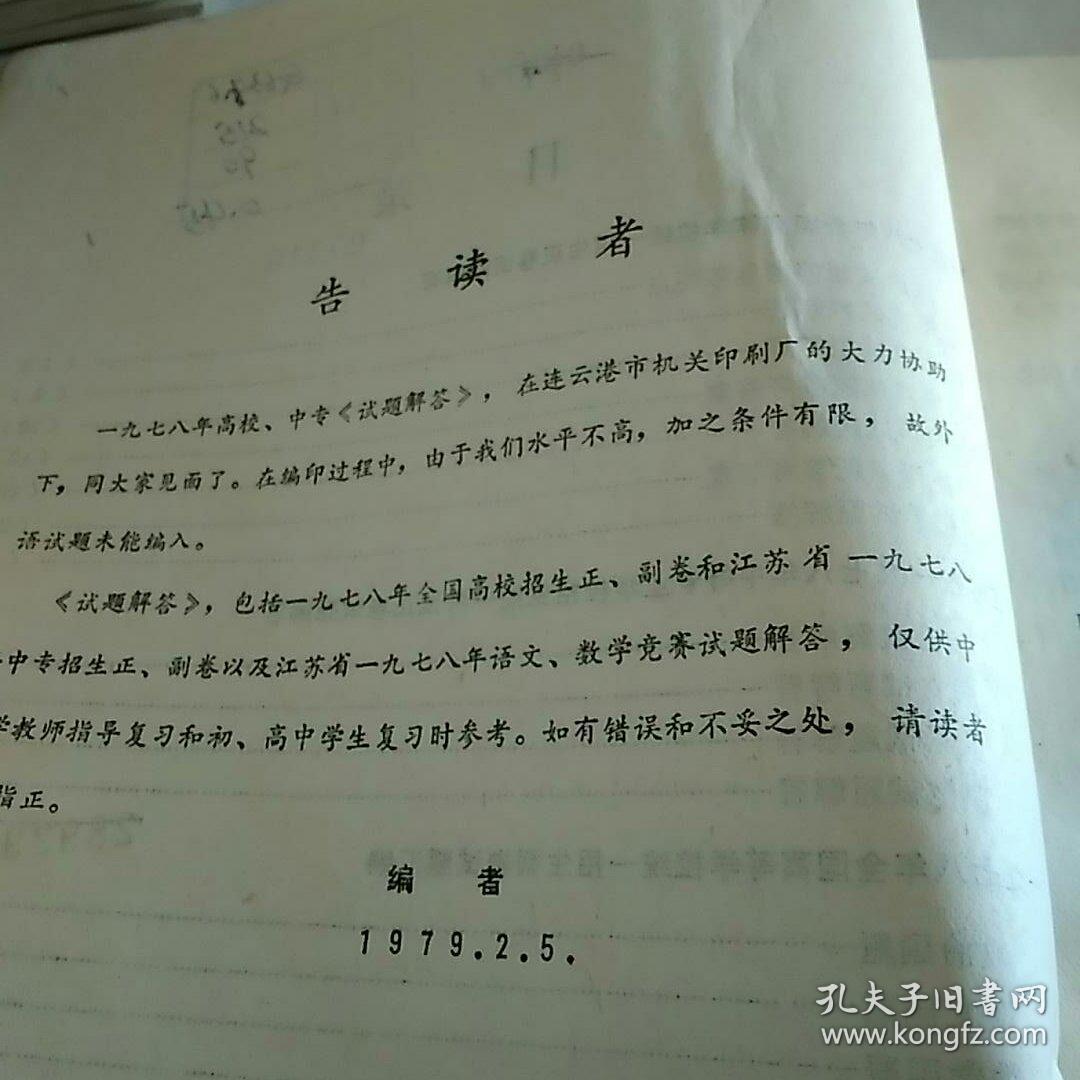 告读者
一九七八年高校、中专《试题解答》，在连云港市机关印刷厂的大力协助
下，同大家见面了。在编印过程中，由于我们水平不高，加之条件有限，故外
语试题未能编入。
《试题解答》，包括一九七八年全国高校招生正、副卷和江苏省一九七八
中专招生正、副卷以及江苏省一九七八年语文、数学竞赛试题解答，仅供中
学教师指导复习和初、高中学生复习时参考。如有错误和不妥之处，请读者
指正。
编者
1979.2.5.
孔夫子旧書网
www.kongfz.com